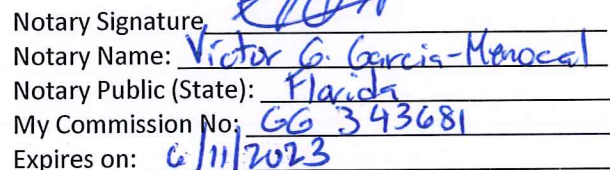 Notary Signature
Notary Name: Victor G. Garcia-Menocal
Notary Public (State): Florida
My Commission No: GG 343681
Expires on: 6/11/2023